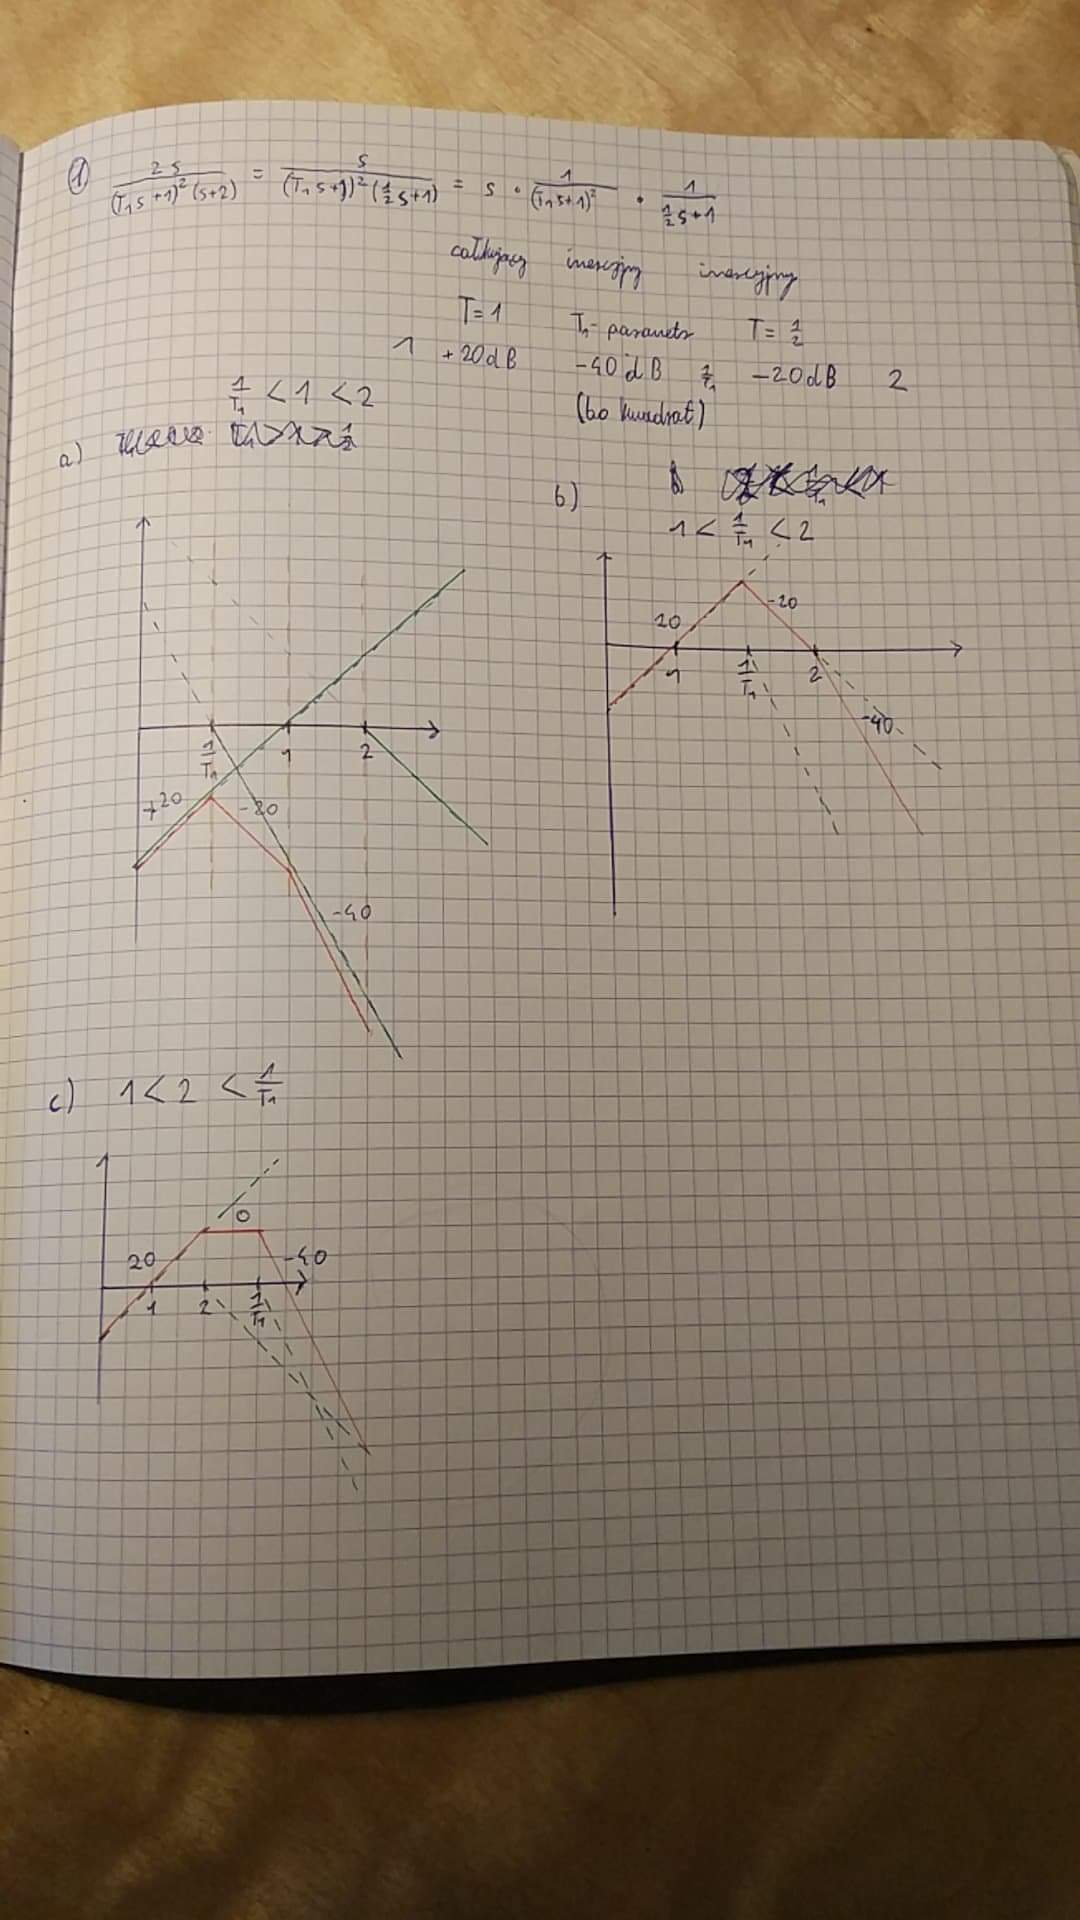 ① 2s / (T₁s+1)² (s+2) = s / (T₁s+1)² (½s+1) = s · 1 / (T₁s+1)² · 1 / ½s+1
całkujący inercyjny inercyjny
T=1 T₁- parametr T= ½
1 +20dB -40dB 1/T₁ -20dB 2
(bo kwadrat)
1/T₁ < 1 < 2
a)
+20 -20
1/T₁ 1 2
-40
b)
1 < 1/T₁ < 2
20 -20
1 1/T₁ 2
-40
c) 1 < 2 < 1/T₁
0
20 -40
1 2 1/T₁